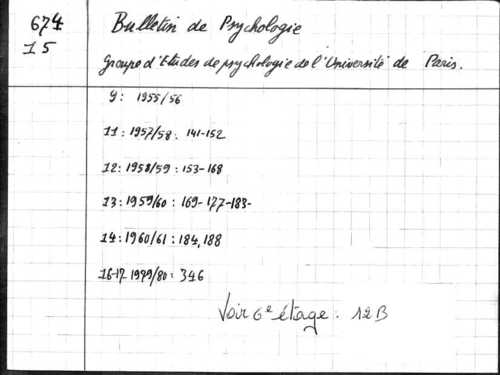 674
15
Bulletin de Psychologie
Groupe d'Etudes de psychologie de l'Université de Paris.
9: 1955/56
11: 1957/58: 141-152
12: 1958/59: 153-168
13: 1959/60: 169-177-183-
14: 1960/61: 184, 188
16-17 1979/80: 346
Voir 6e étage: 12B